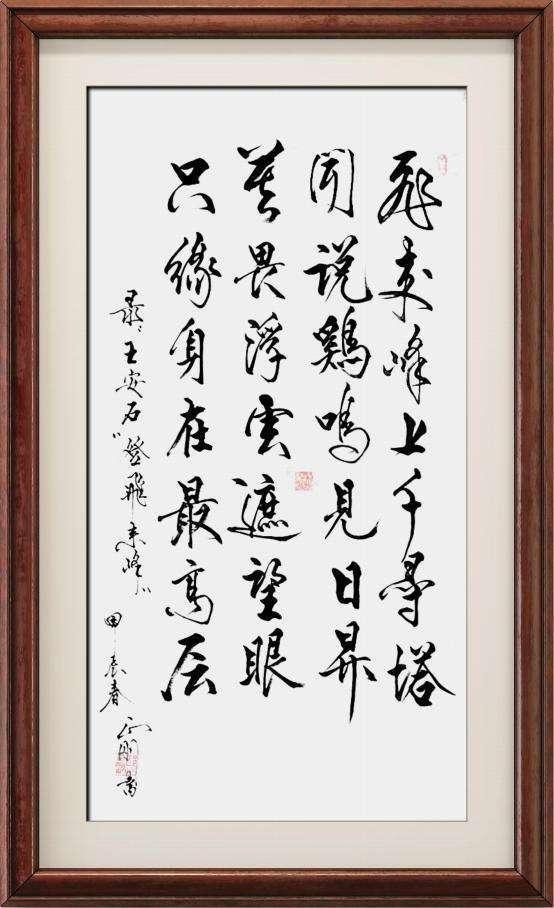 飛来峰上千尋塔
闻説鷄鳴見日昇
莫畏浮雲遮望眼
只緣身在最高层
录王安石“登飛来峰”
甲辰春
书